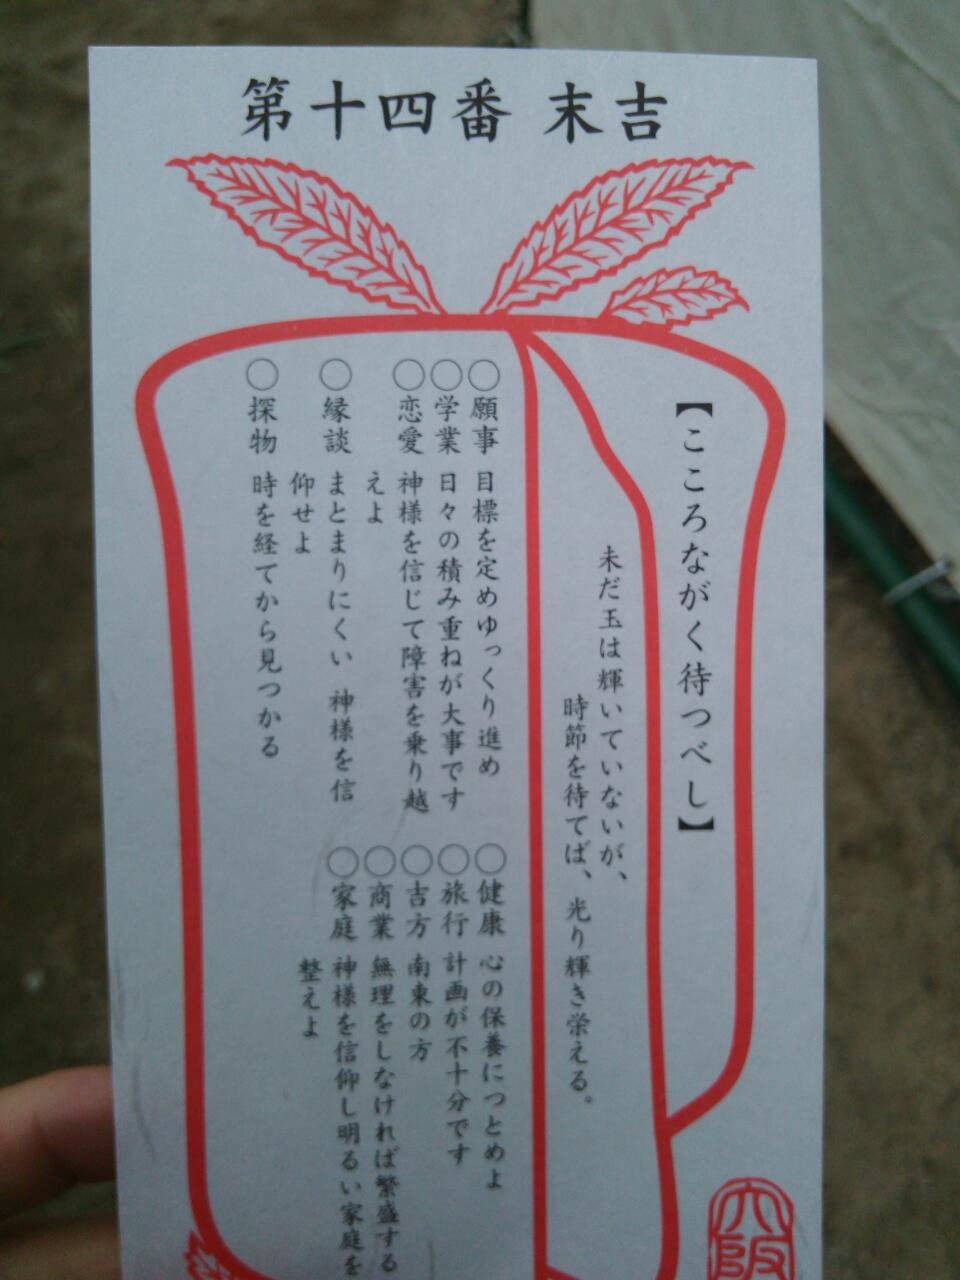 第十四番 末吉
【こころながく待つべし】
未だ玉は輝いていないが、
時節を待てば、光り輝き栄える。
○願事 目標を定めゆっくり進め
○学業 日々の積み重ねが大事です
○恋愛 神様を信じて障害を乗り越
えよ
○縁談 まとまりにくい 神様を信
仰せよ
○探物 時を経てから見つかる
○健康 心の保養につとめよ
○旅行 計画が不十分です
○吉方 南東の方
○商業 無理をしなければ繁盛する
○家庭 神様を信仰し明るい家庭を
整えよ
大阪